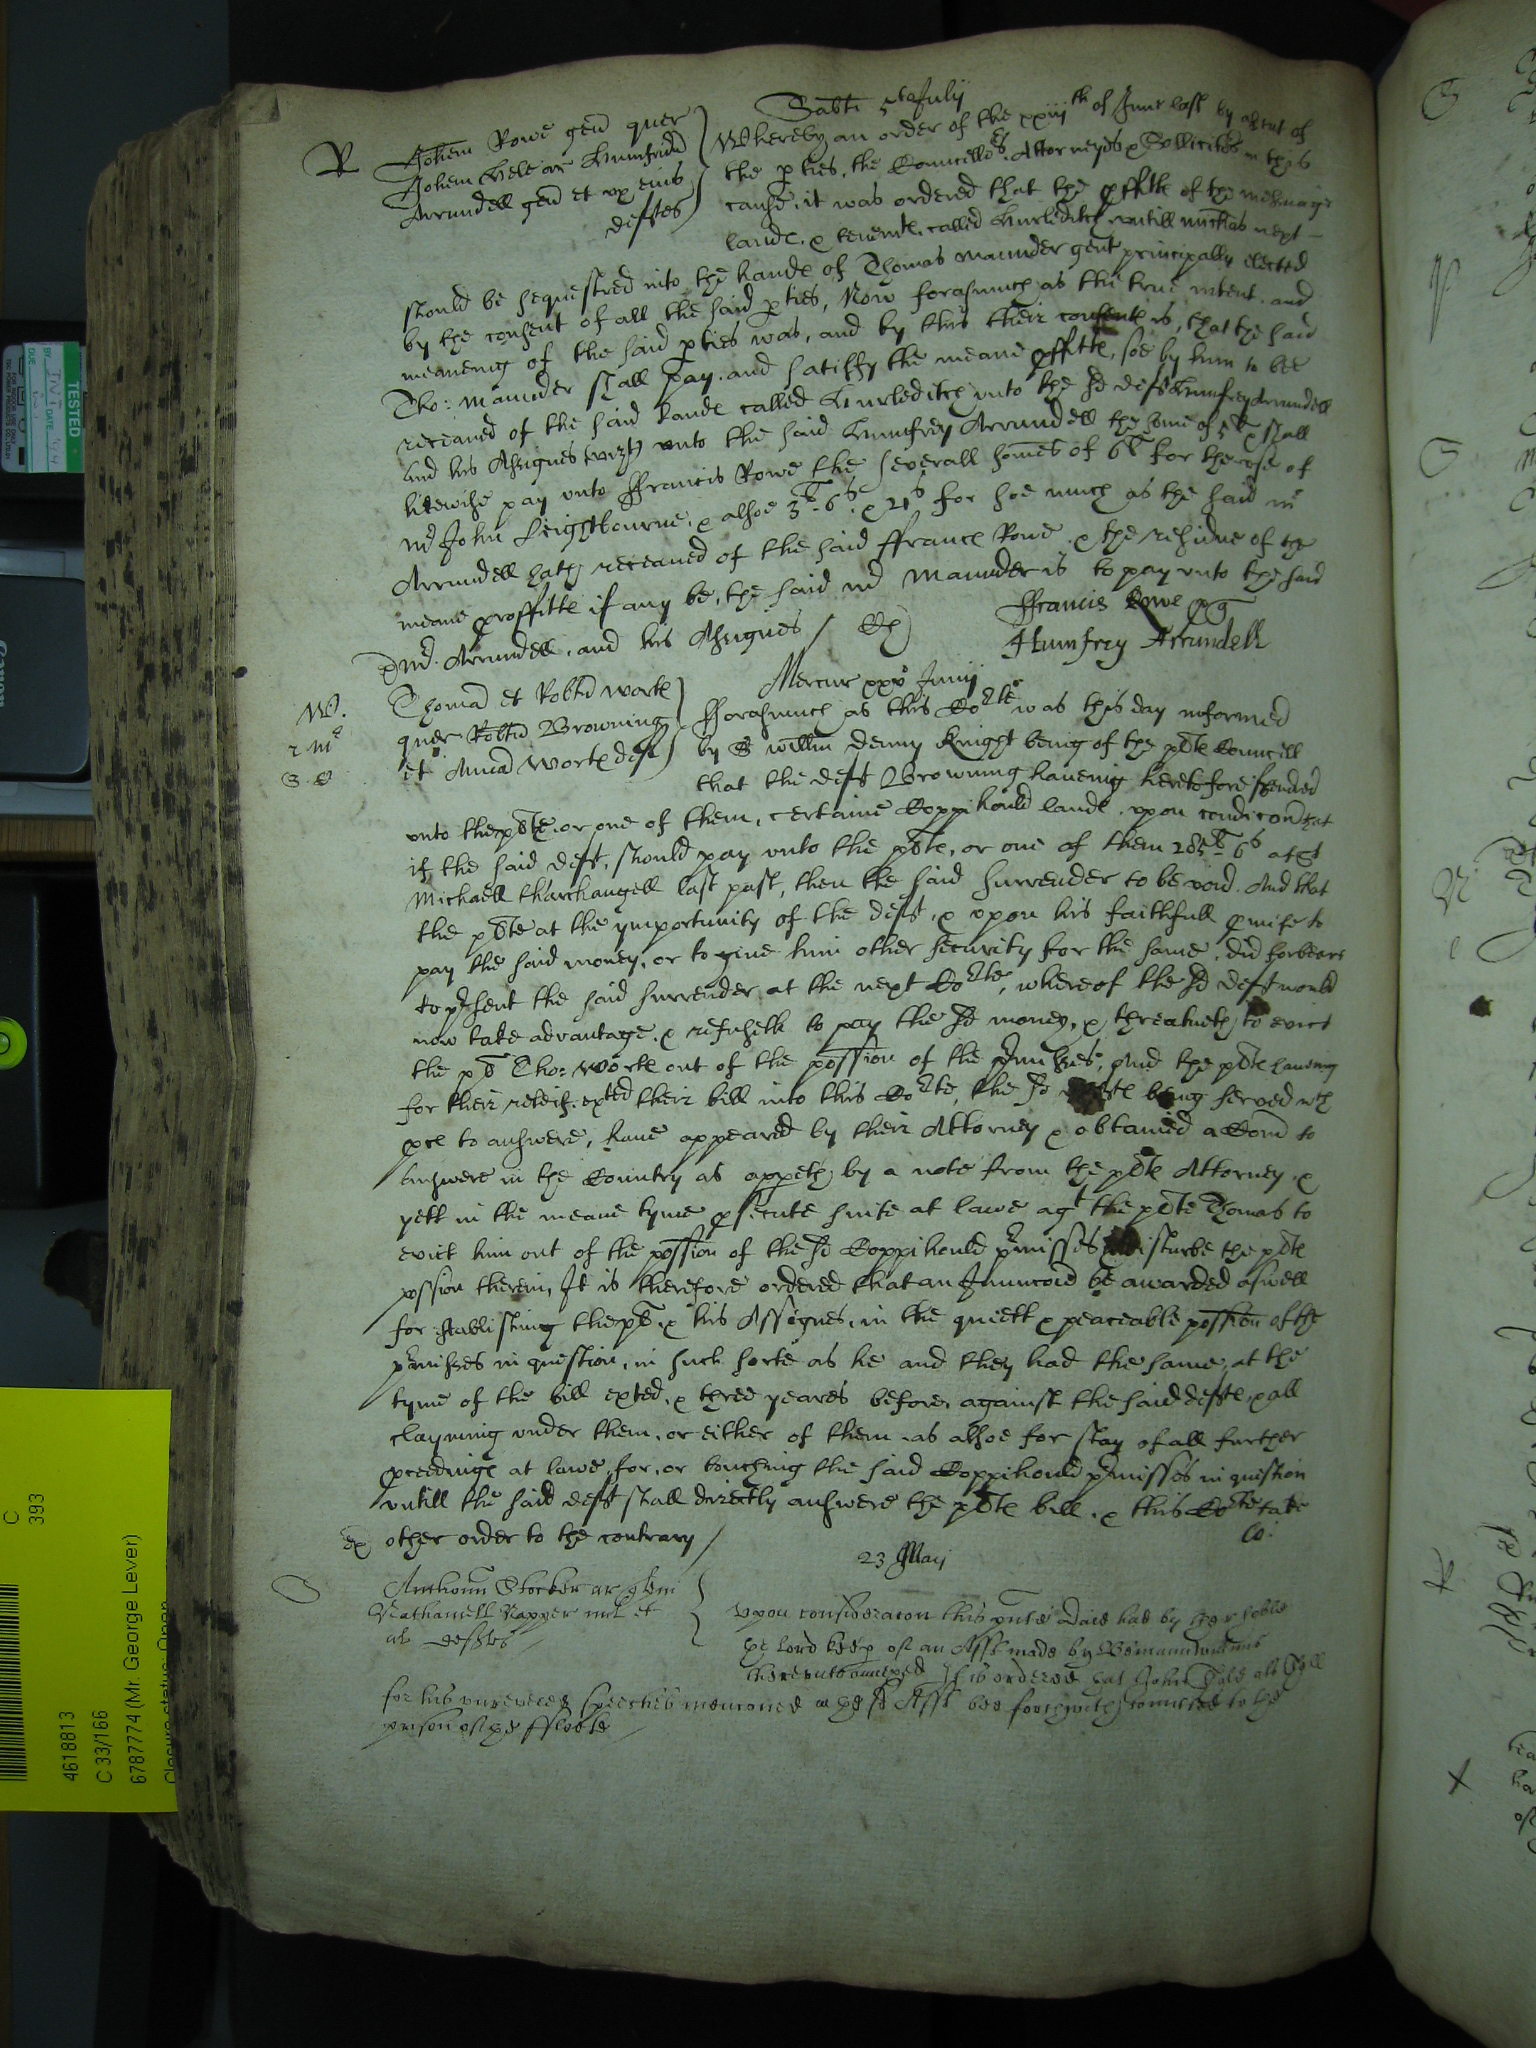 Sabti 5to Julij
R
Johem Rowe gen quer
Johem Hele ar Humfridu
Arrundell gen et ux eius
deftes
Whereby an order of the xxiijth of June last by assent of
the pties, the Councello~s, Attorneyes & Sollicito~s in this
cause, it was ordered that the pffitte of the messuage
lande, & tenemte, called Hurleditch untill Michas next
should be sequestred into the hande of Thomas Maunder gent principally elected
by the consent of all the said pties, Now forasmuch as the true intent and
meaneing of the said pties was, and by this their consente is, that the said
Tho: Maunder shall pay and satisfy the meane pffitte, soe by him to bee
receaved of the said lande called Hurleditch unto the sd deft Humfrey Arrundell
and his Assignes (vizt) unto the said Humfrey Arrundell the some of 5li & shall
likewise pay unto Ffrancis Rowe the severall somes of 6li for the use of
Mr John Leightbourne, & alsoe 3li 6s & 21s for soe much as the said Mr
Arrundell hath receaved of the said Ffrance Rowe & the residue of the
meane proffitte if any be, the said Mr Maunder is to pay unto the said
Mr Arrundell, and his Assignes / Ex
Ffrancis Rowe
Humfrey Arrundell
Mercur xxv Junij
W.
Thomas et Robtus Worte
quer Robtus Browning
et Worte deft
Fforasmuch as this Corte was this day informed
by Sr Willm Denny Knight being of the plte Councell
that the deft Browning haveing heretofore surrendred
unto the plte, or one of them, certaine Coppihould lande, upon condicon that
if the said deft, should pay unto the plte, or one of them 285li 6s at St
Michaell tharchangell last past, then the said surrender to be void. And that
the plte at the ymportunity of the deft, & upon his faithfull pmise to
pay the said money, or to give him other security for the same, did forbeare
to psent the said surrender at the next Corte, whereof the sd deft would
now take advantage, & refuseth to pay the sd money, & threatneth to evict
the pl Tho: Worte out of the possion of the pmisses, And the plte haveing
for their releif exted their bill into this Corte, the sd being served wth
pce to answere, have appeared by their Attorney & obtained a Com to
answere in the Country as appeth by a note from the plte Attorney &
yett in the meane tyme psecute suite at lawe agt the plte Thomas to
evict him out of the possion of the sd Coppihould pmisses disturbe the plte
possion therein, It is therefore ordered that an Iniuncon be awarded aswell
for stablishing the pl, & his Assignes, in the quiett & peaceable possion of the
pmisses in question, in such sorte as he and they had the same, at the
tyme of the bill exted, & three yeares before, against the said defte, & all
clayming under them, or either of them, as alsoe for stay of all further
pceedinge at lawe, for, or touching the said Coppihould pmisses in question
untill the said deft shall directly answere the plte bill, & this Corte take
ex other order to the contrary /
Co:
23 Maij
Anthoniu Stocker ar
Nathaniell Napper mil et
al deftes
Upon consideracon this pnte daie had by the right hoble
the lord Keep of an Afft made by
hereunto annexed It is ordered that John
for his unreverent speeches mencioned in the sd Afft bee forthwith comitted to the
prison of the Ffleete /
TESTED
C
393
4618813
C 33/166
6787774 (Mr. George Lever)
Closure status: Open
Canon